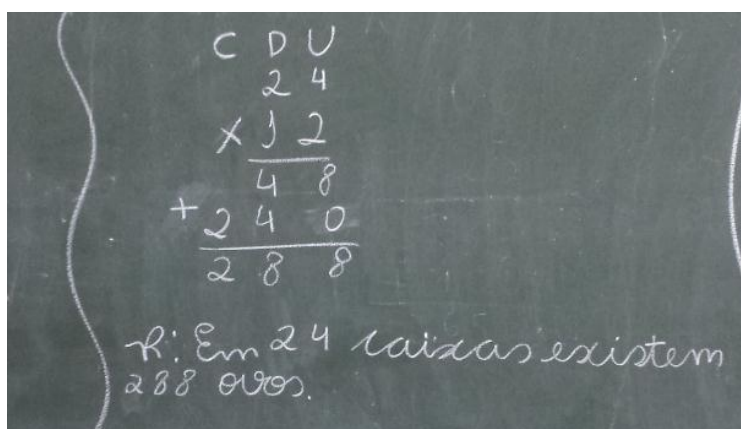 C D U
2 4
x 1 2
4 8
+ 2 4 0
2 8 8
R: Em 24 caixas existem
288 ovos.